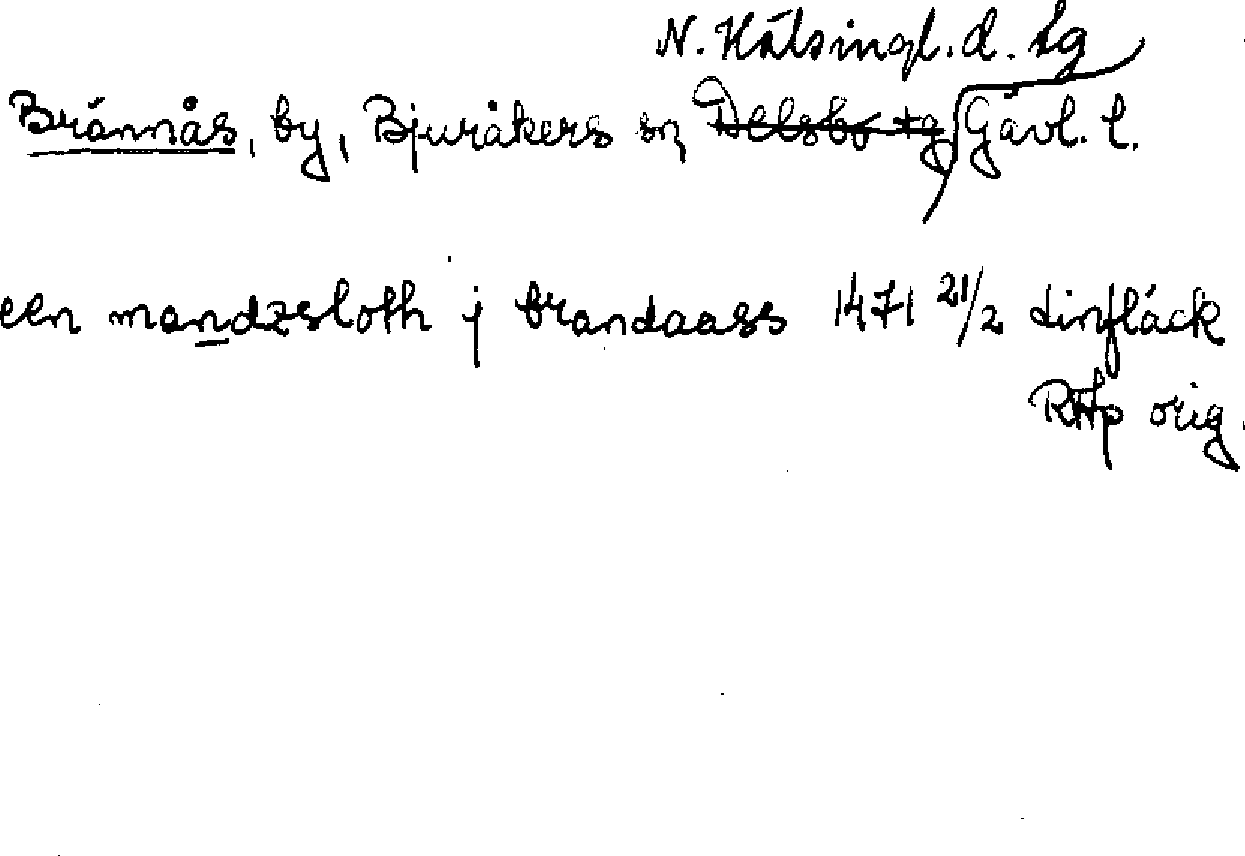 N. Hälsingl. d. tg
Brännås, by, Bjuråkers sn, Delsbo tg Gävl. l.
een mandzsloth j brandaass 1471 21/2 Linfläck
RAp orig.